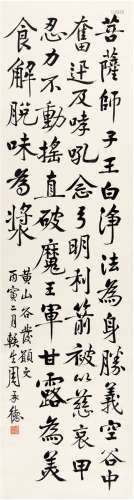 菩薩師子王白淨法為身勝義空谷中
奮迅及哮吼念弓明利箭被以慈哀甲
忍力不動搖直破魔王軍甘露為美
食解脫味為漿
黃山谷發願文
丙寅二月軼生周承德